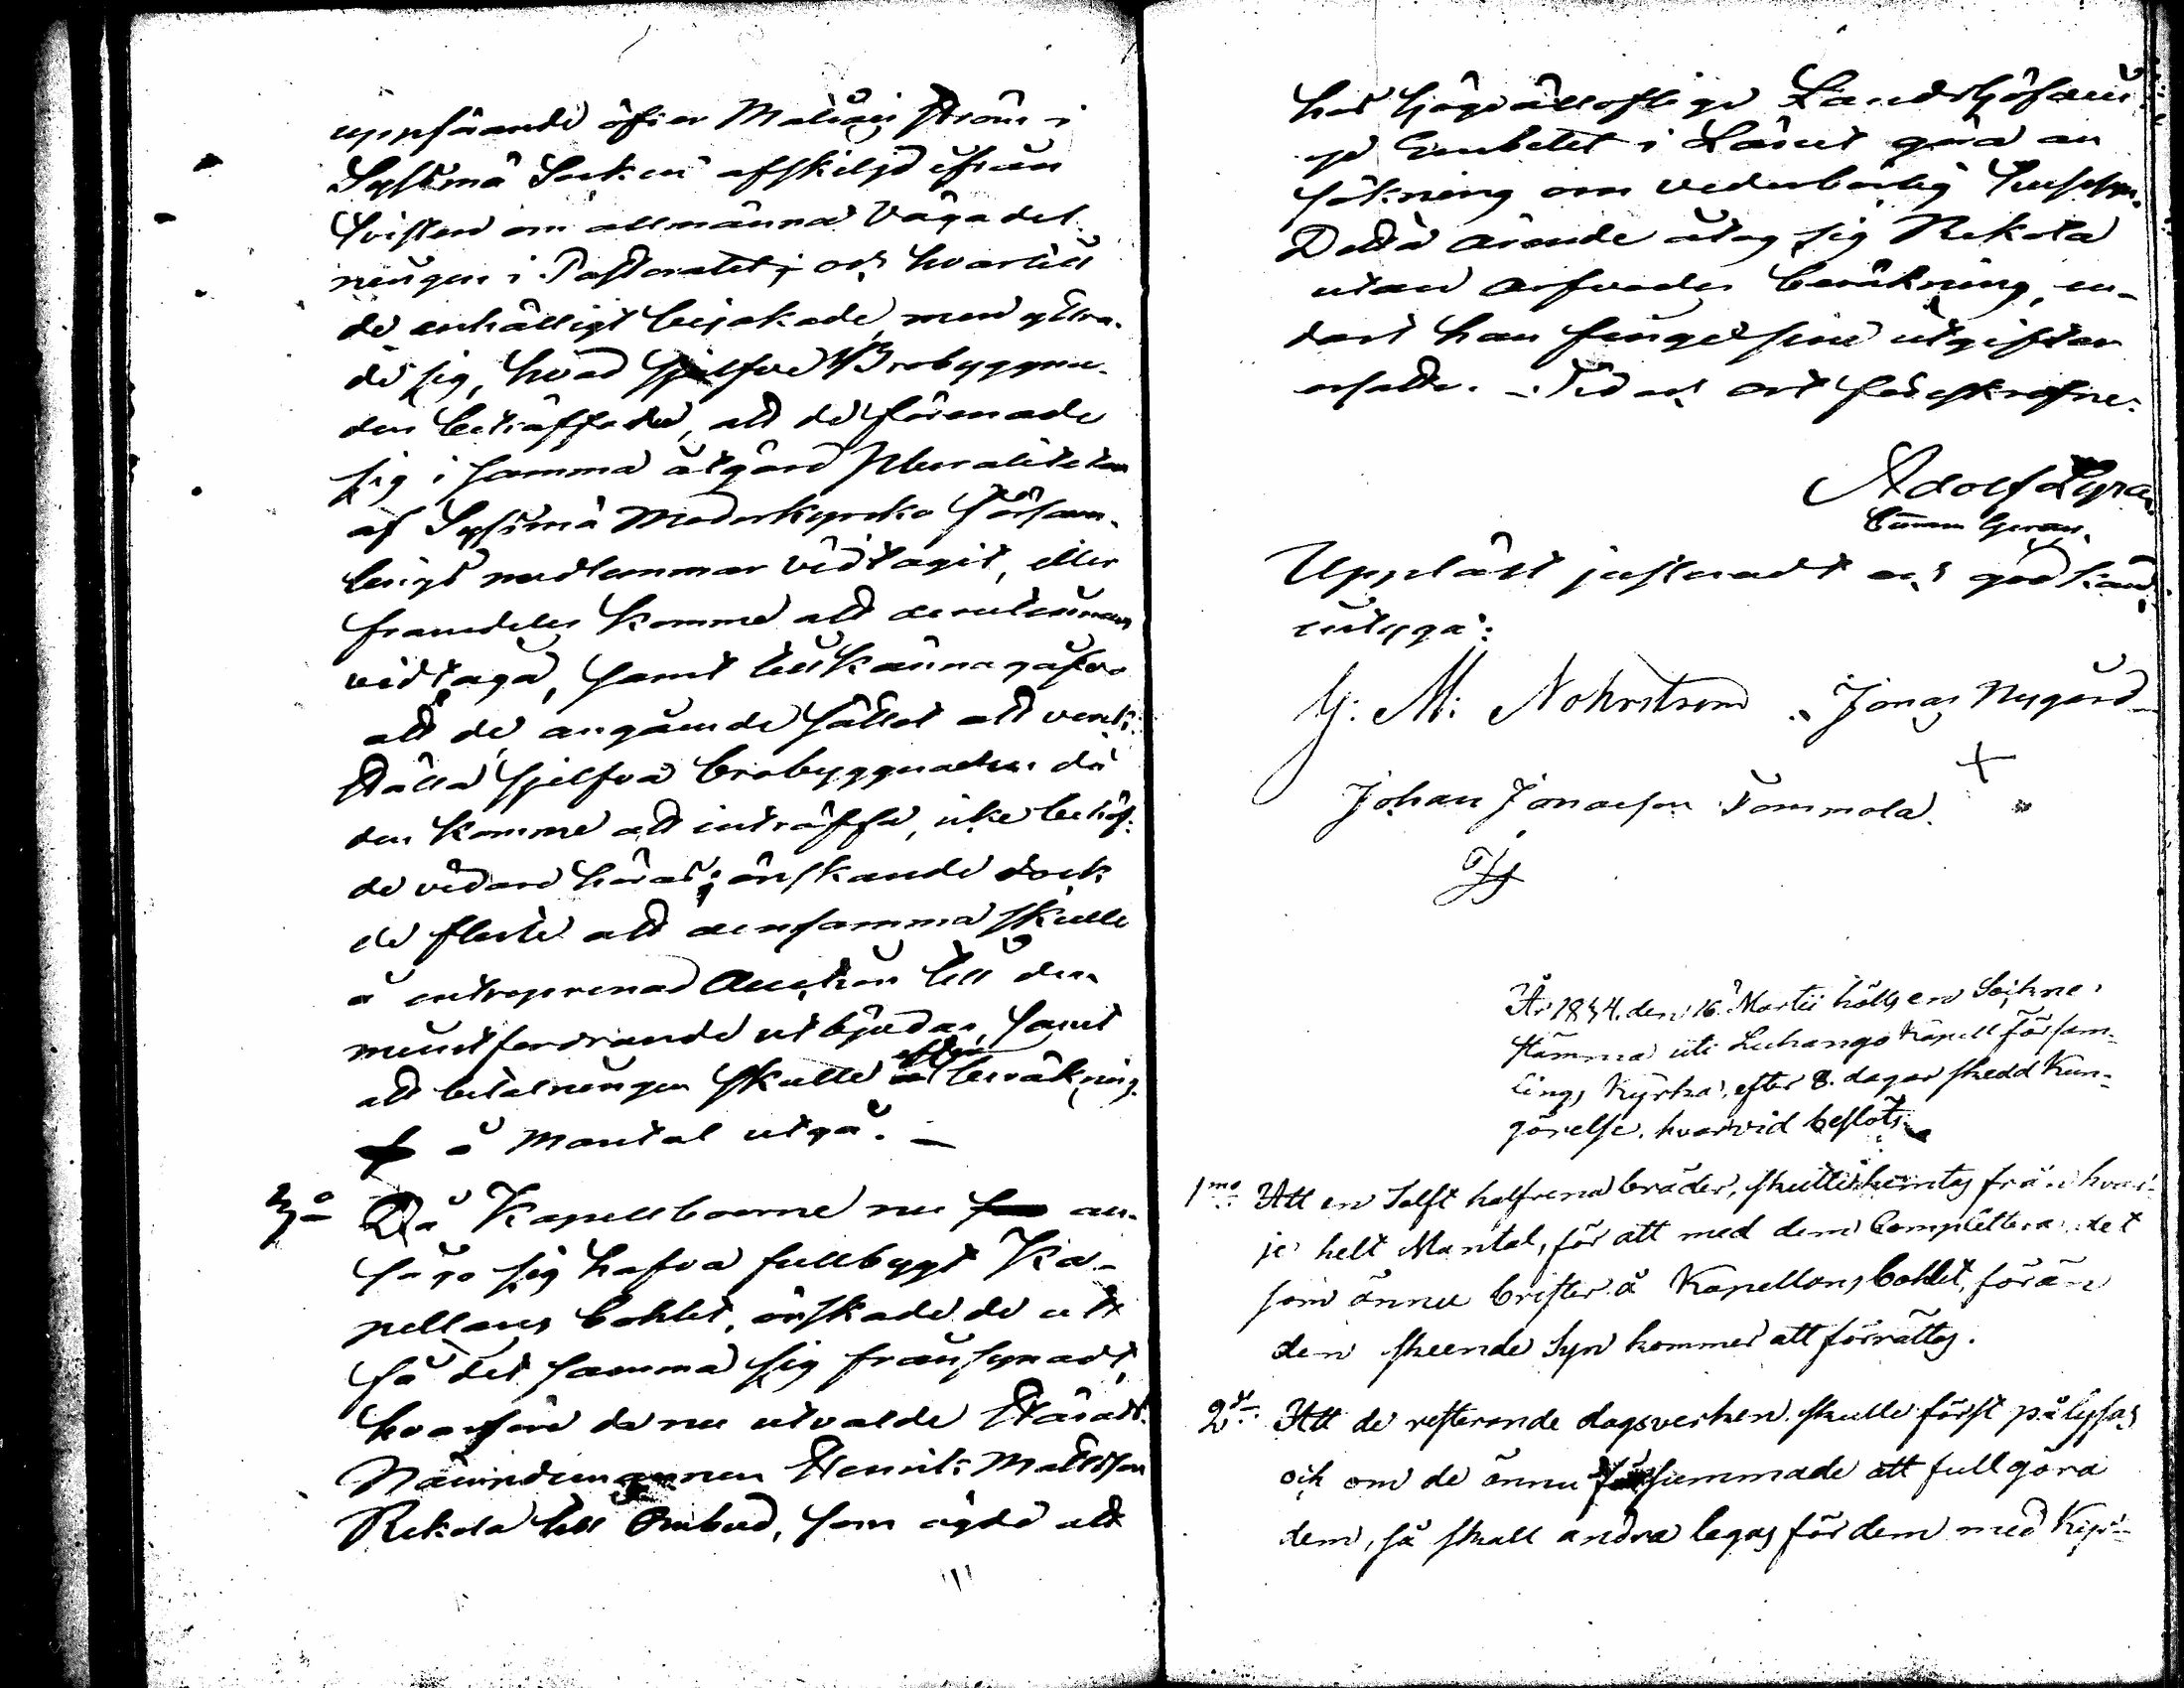 uppförande öfver Maturs ström i
Sysmä Socken afskiljd ifrån
tvisten om allmänna vägadel
ningen i Pastoratet; och hvartill
de enhälligt bejakade, men yttra-
de sig, hvad sjelfva Brobyggna-
den beträffade, att de förenade
sig i samma åtgärd pluraliteten
af Sysmä Moderkyrko Församm-
lings medlemmar vidtagit, eller
framdeles komme att derutinnan
vidtaga, samt tillkännagåfvo
att de, angående sättet att verk-
ställa sjelfva brobyggnaden då
den komme att inträffa, icke behöf-
de vidare höras; önskande dock
de fleste att densamma skulle
å entreprenad Auction till den
minstfordrande utbjudas, samt
att betalningen skulle efter beräkning
å Mantal utgå. —
3o Då Kapellboerne nu an-
sågo sig hafva fullbygt Ka-
pellans bohlet, önskade de att
få det samma sig fränsynadt,
hvarföre de nu utvalde Härads
Nämndemannen Henrik Mattsson
Rekola till Ombud, som ägde att
hos Högvällofliga Landshöfdin-
ge Embetet i Länet göra an
sökning om vederbörlig
Detta ärende åtog sig Rekola
utan arfvodes beräkning, en-
dast han finge sine utgifter
ersatte. – Tid och ort föreskrefne:
Adolf
Uppläst justeradt och godkändt,
intyga:
G: M: Nohrstrom Jonas Nygård
Johan Jonasson Tommola
År 1844. den 16. Martii hölts en Sockne-
stämma uti Luhango Kapell försam-
lings Kyrka, efter 8. dagar skedd Kun-
görelse, hvarvid beslöts:
1mo Att en Tolft halfrena bräder, skulle hemtas från hvar-
je helt Mantal, för att med dem Complettera det
som ännu brister å Kapellans bohlet, förän
den skeende Syn kommer att förrättas.
2do Att de resterande dagsverken skulle först pålysas
och om de ännu försummade att fullgöra
dem, så skall andra legas för dem med Kyr-